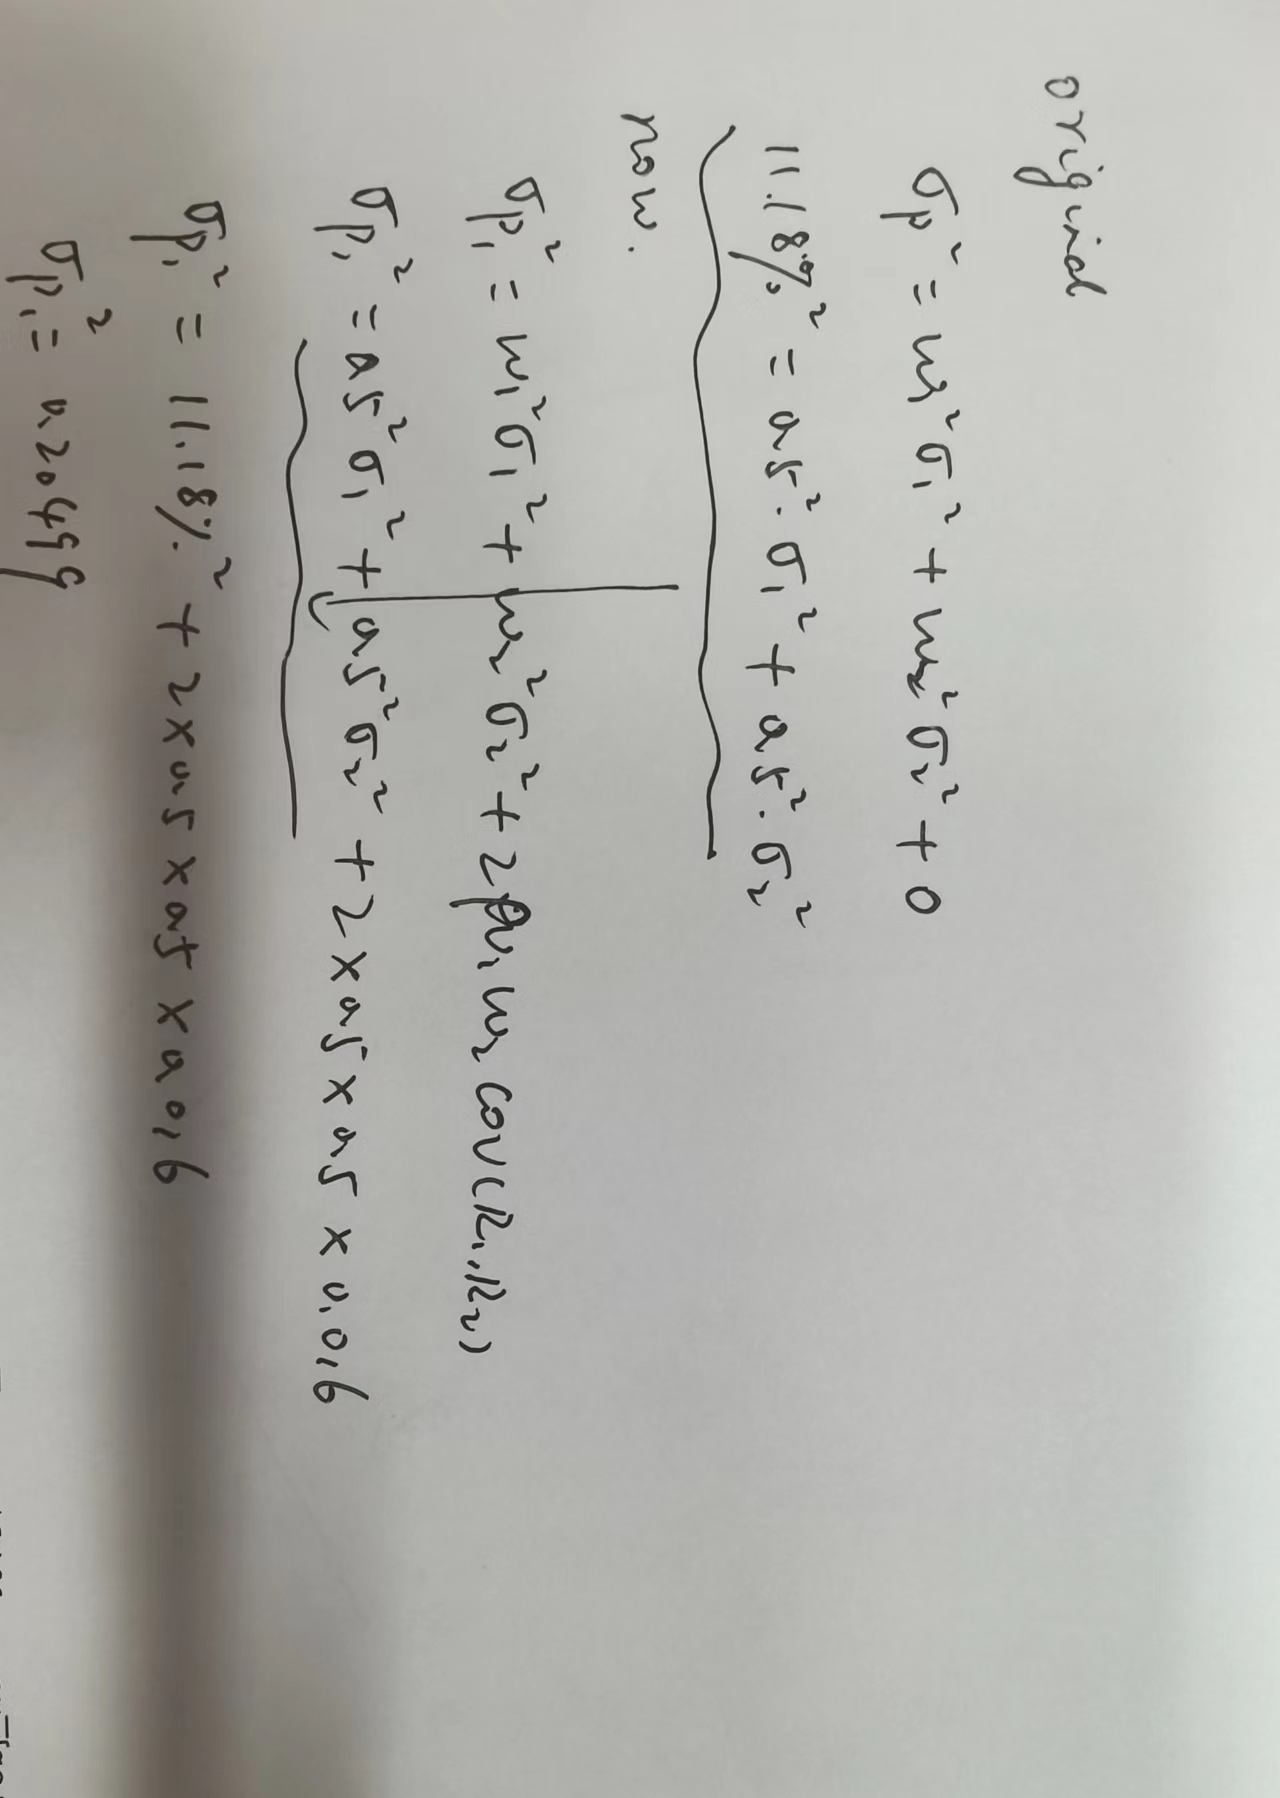 original
σp² = w₁²σ₁² + w₂²σ₂² + 0
11.18%² = 0.5²·σ₁² + 0.5²·σ₂²
now.
σp₁² = w₁²σ₁² + w₂²σ₂² + 2w₁w₂cov(R₁,R₂)
σp₁² = 0.5²σ₁² + 0.5²σ₂² + 2×0.5×0.5×0.016
σp₁² = 11.18%² + 2×0.5×0.5×0.016
σp₁² = 0.20499